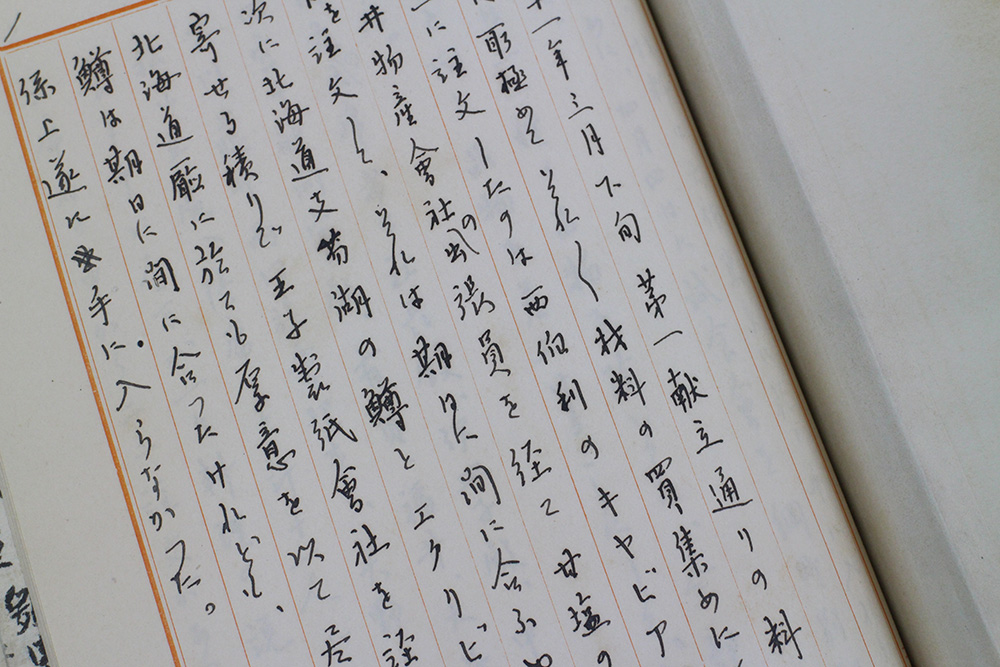 一年三月下旬第一献立通りの料
取極めてそれ〱材料の買集めに
に注文したのは西伯利のキャビア
井物産會社の出張員を経て甘塩の
を注文して、それは期日に間に合ふ
次に北海道支笏湖の鱒とエクリビ
寄せる積りで王子製紙會社を
北海道廰に於ても厚意を以て尽
鱒は期日に間に合つたけれども、
係上遂に手に入らなかつた。